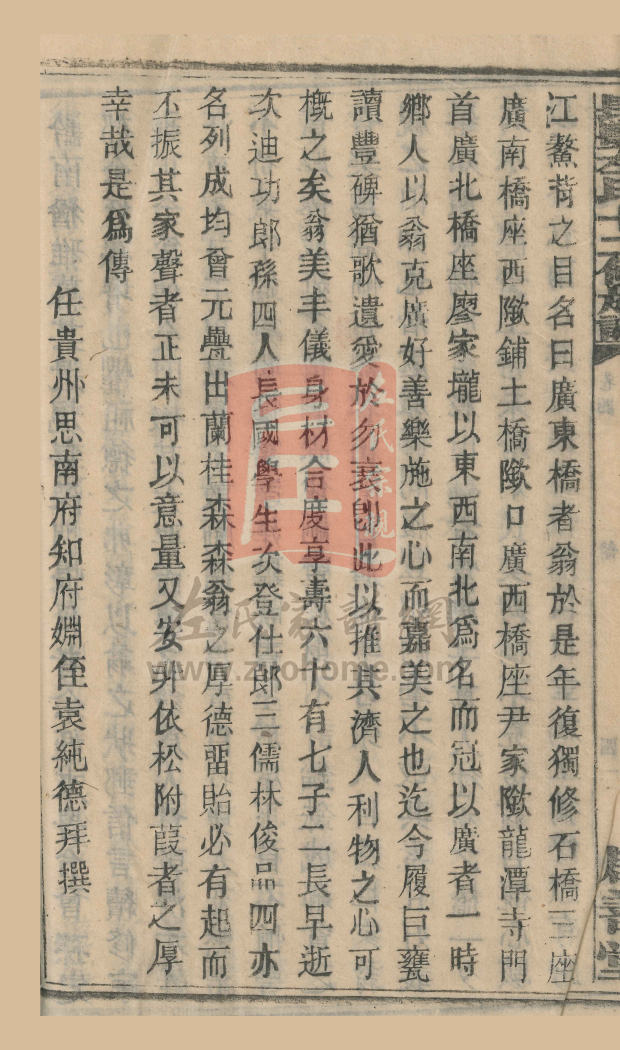 江鰲背之目名曰廣東橋者翁於是年復獨修石橋三座
廣南橋座西歘鋪土橋歘口廣西橋座尹家歘龍潭寺門
首廣北橋座廖家壠以東西南北爲名而冠以廣者一時
鄉人以翁克廣好善樂施之心而嘉美之也迄今履巨甕
讀豐碑猶歌遺愛於勿衰卽此以推其濟人利物之心可
槪之矣翁美丰儀身材合度享壽六十有七子二長早逝
次迪功郎孫四人長國學生次登仕郎三儒林俊品四亦
名列成均曾元疊出蘭桂森森翁之厚德畱貽必有起而
丕振其家聲者正未可以意量又安非依松附葭者之厚
幸哉是爲傳
任貴州思南府知府婣侄袁純德拜撰
氏家譜網
www.zuohome.com